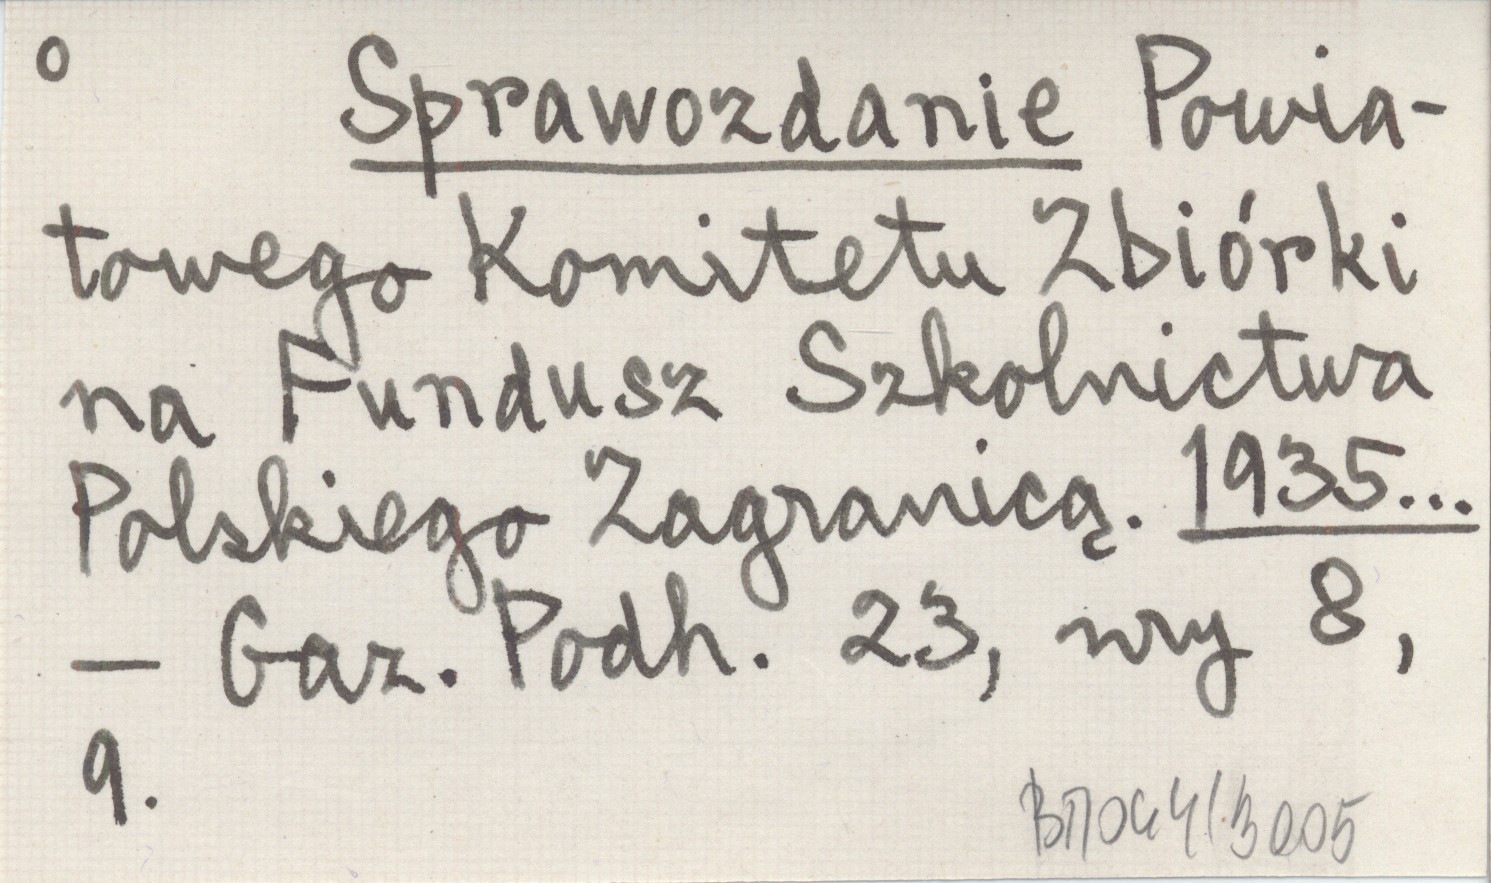 o Sprawozdanie Powia-
towego Komitetu Zbiórki
na Fundusz Szkolnictwa
Polskiego Zagranicą. 1935...
— Gaz. Podh. 23, nry 8,
9.